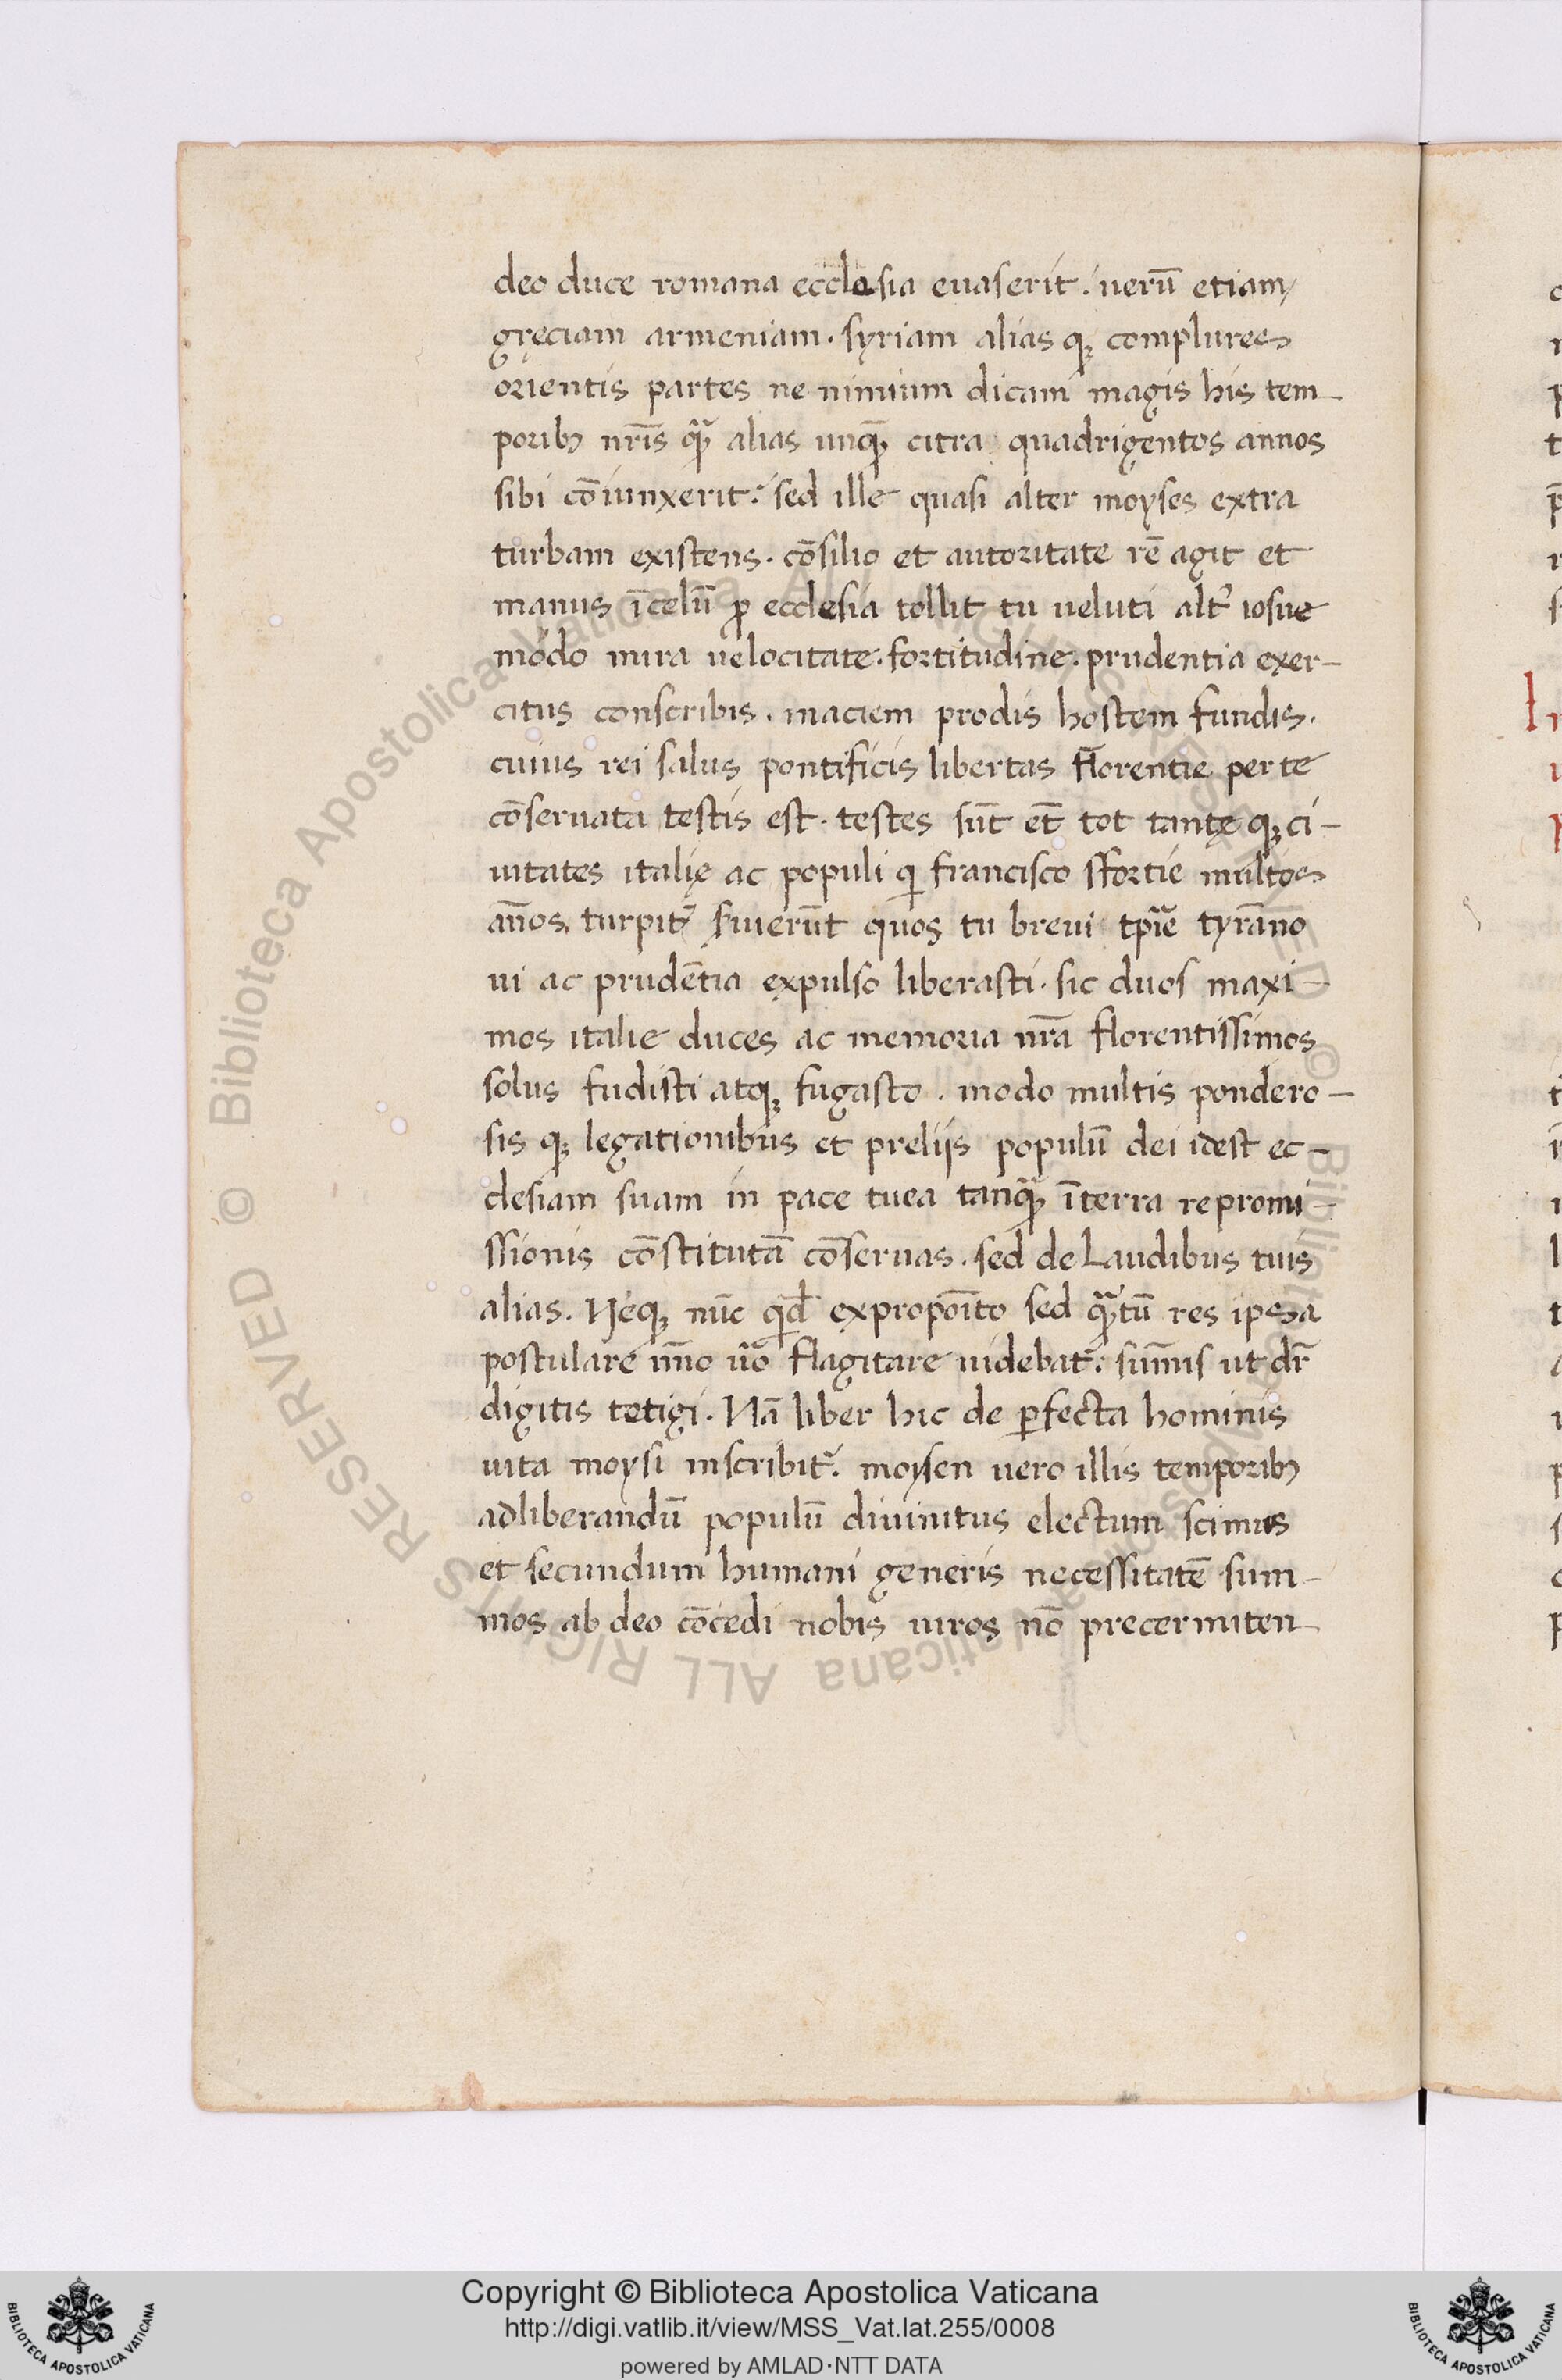 deo duce romana ecclesia euaserit. uerū etiam
gręciam armeniam. syriam alias qꝫ complures
orientis partes ne nimium dicam magis his tem-
poribꝫ nr̄is qᷓꝫ alias unqᷓꝫ citra quadrigentos annos
sibi cōiunxerit: sed ille quasi alter moyses extra
turbam existens. cōsilio et autoritate rē agit et
manus ī celū ꝓ ecclesia tollit tu ueluti alt᷑ iosue
modo mira uelocitate. fortitudine. prudentia exer-
citus conscribis. inaciem prodis hostem fundis.
cuius rei salus pontificis libertas florentie per te
cōseruata testis est. testes sūt et̄ tot tantę qꝫ ci-
uitates italię ac populi qi francisco sfortie multos
an̄os turpit᷑ siuerūt quos tu breui tp̄re tyrāno
ui ac prudētia expulso liberasti. sic duos maxi-
mos italie duces ac memoria nr̄a florentissimos
solus fudisti atqꝫ fugasto. modo multis pondero-
sis qꝫ legationibus et prelijs populū dei idest ec-
clesiam suam in pace tuea tanqᷓꝫ ī terra repromi-
ssionis cōstitutā cōseruas. sed de Laudibus tuis
alias. Neqꝫ nūc qd̄ expropoīto sed qᷓꝫtū res ipsa
postulare īmo ūo flagitare uidebat᷑: sum̄is ut dr̄
digitis tetigi. Nā liber hic de ꝑfecta hominis
uita moysi inscribit᷑. moysen uero illis temporibꝫ
adliberandū populū diuinitus electum scimus
et secundum humani generis necessitatē sum-
mos ab deo cōcedi nobis uiros nō precermiten-
Copyright © Biblioteca Apostolica Vaticana
http://digi.vatlib.it/view/MSS_Vat.lat.255/0008
powered by AMLAD·NTT DATA
BIBLIOTECA APOSTOLICA VATICANA
BIBLIOTECA APOSTOLICA VATICANA
© Biblioteca Apostolica Vaticana ALL RIGHTS RESERVED
© Biblioteca Apostolica Vaticana ALL RIGHTS RESERVED